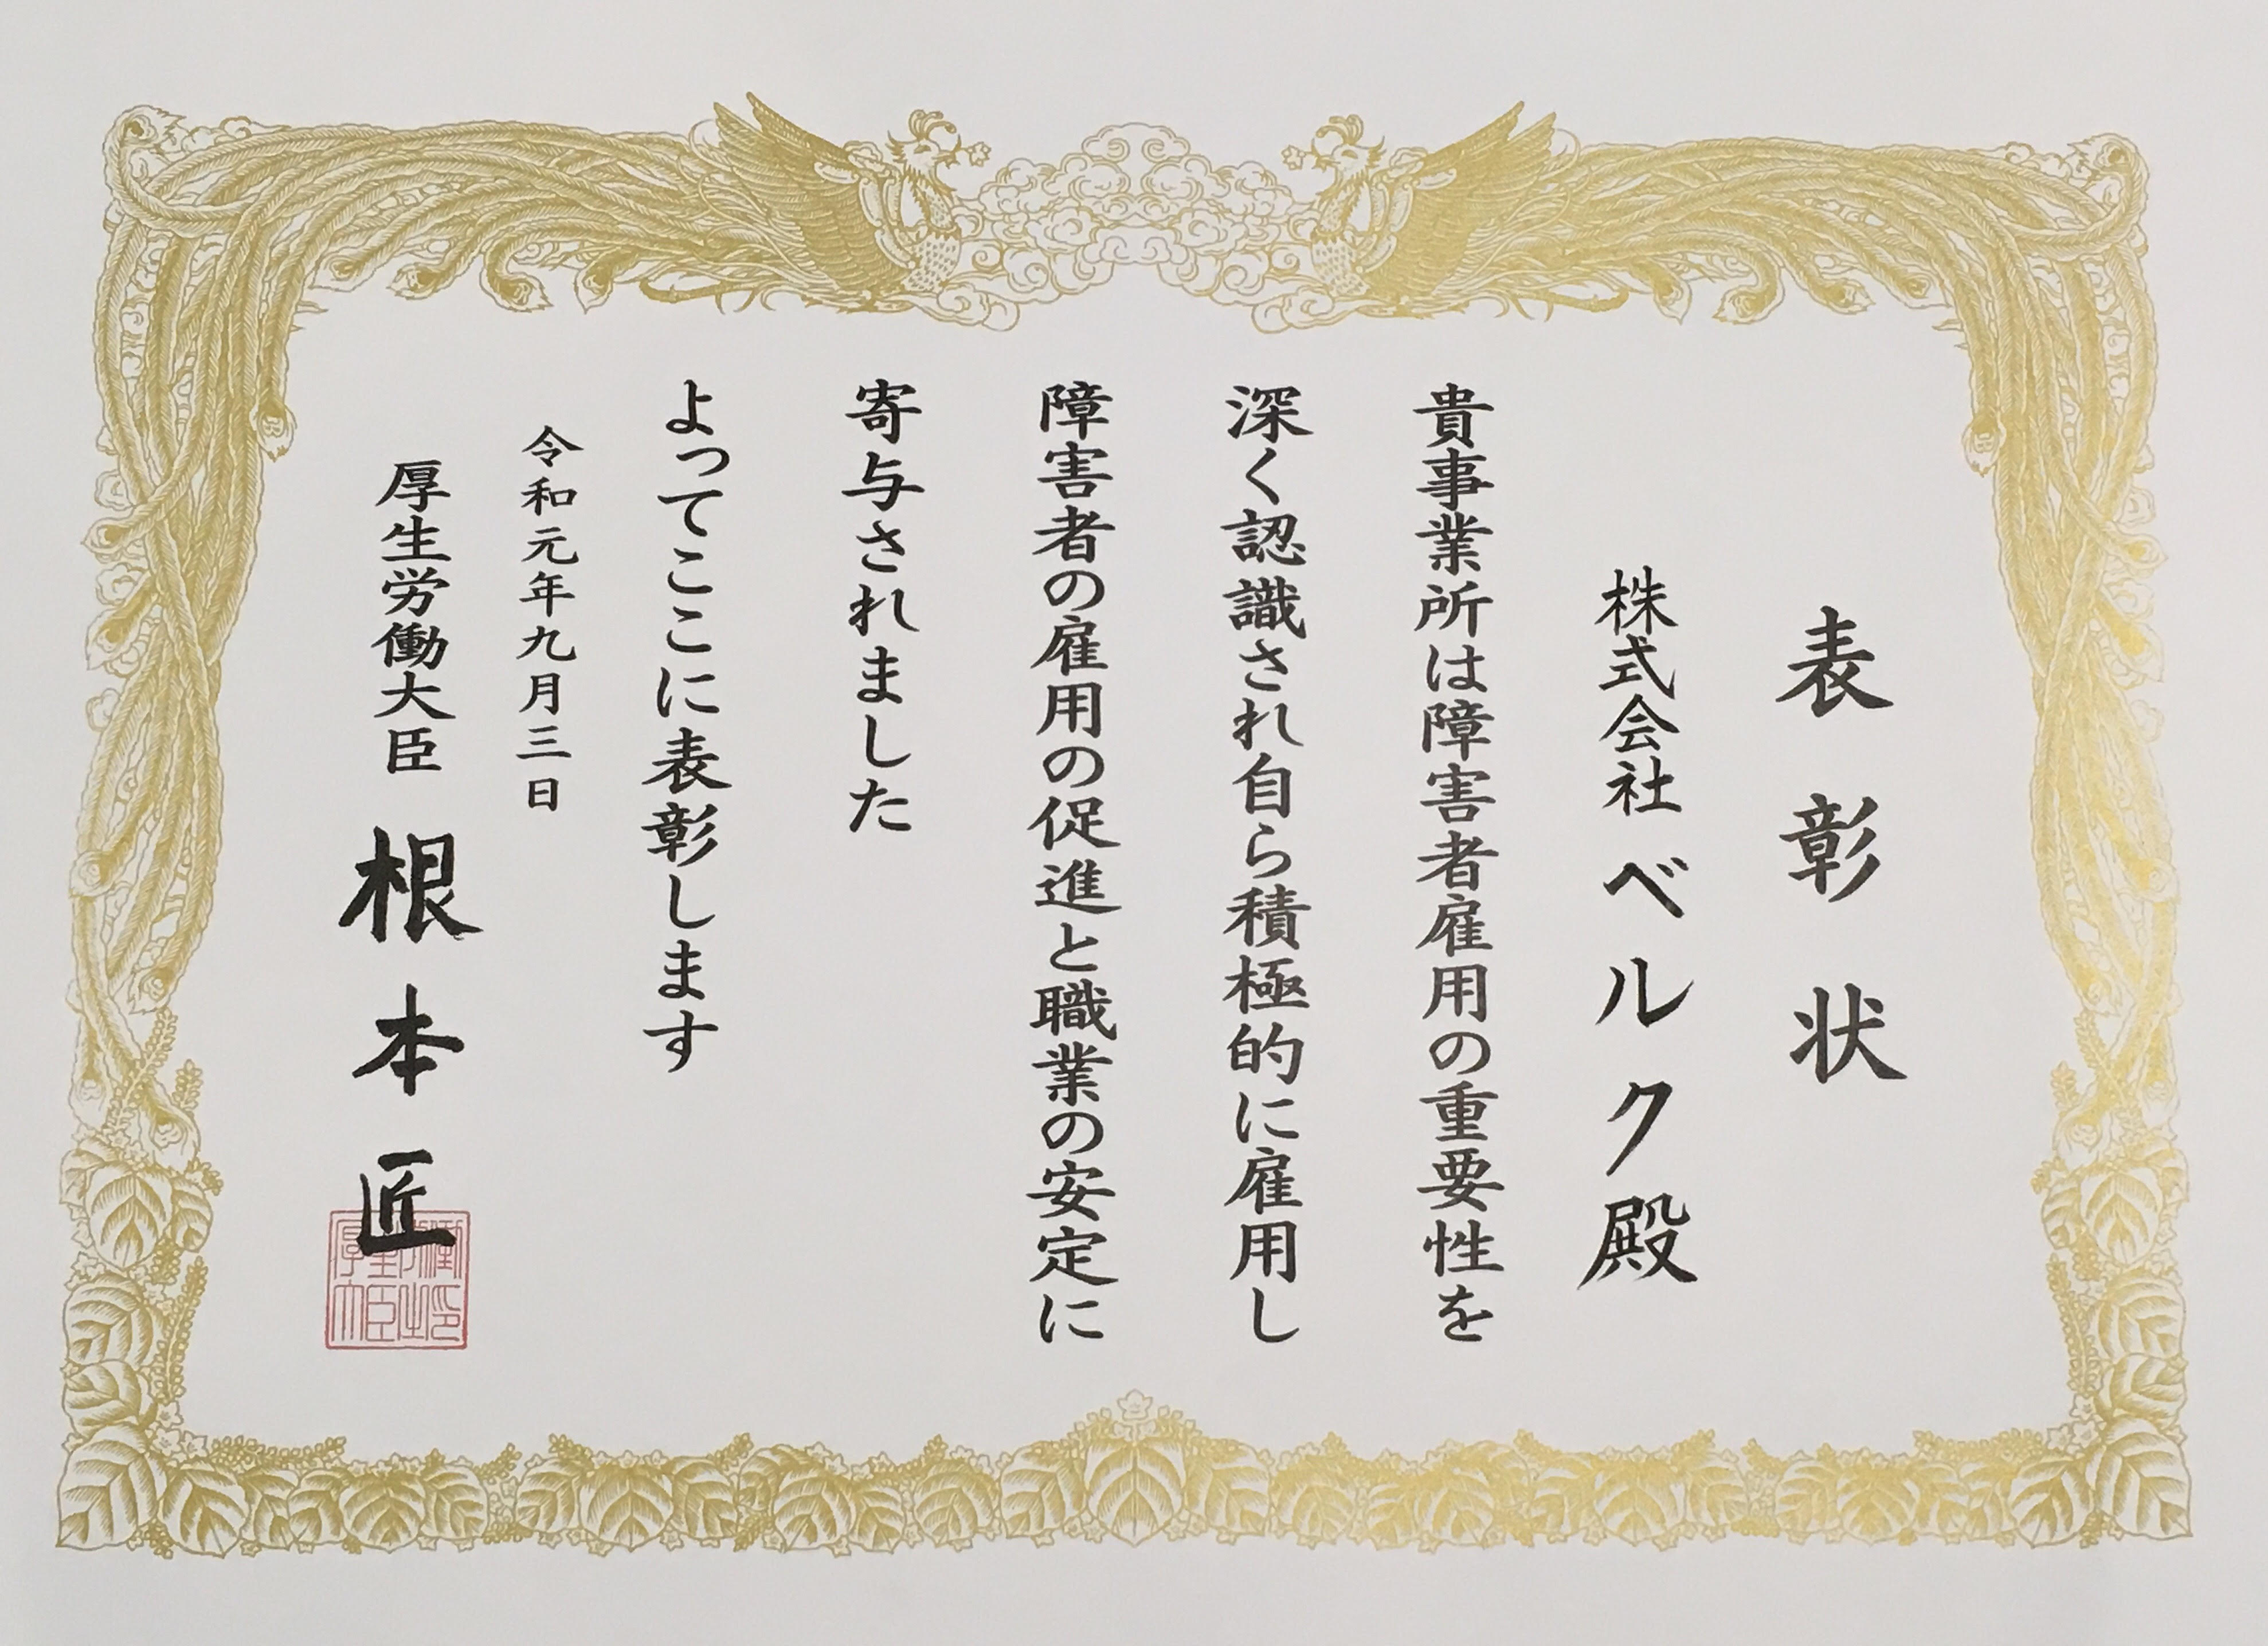 表彰状
株式会社ベルク殿
貴事業所は障害者雇用の重要性を
深く認識され自ら積極的に雇用し
障害者の雇用の促進と職業の安定に
寄与されました
よってここに表彰します
令和元年九月三日
厚生労働大臣 根本匠